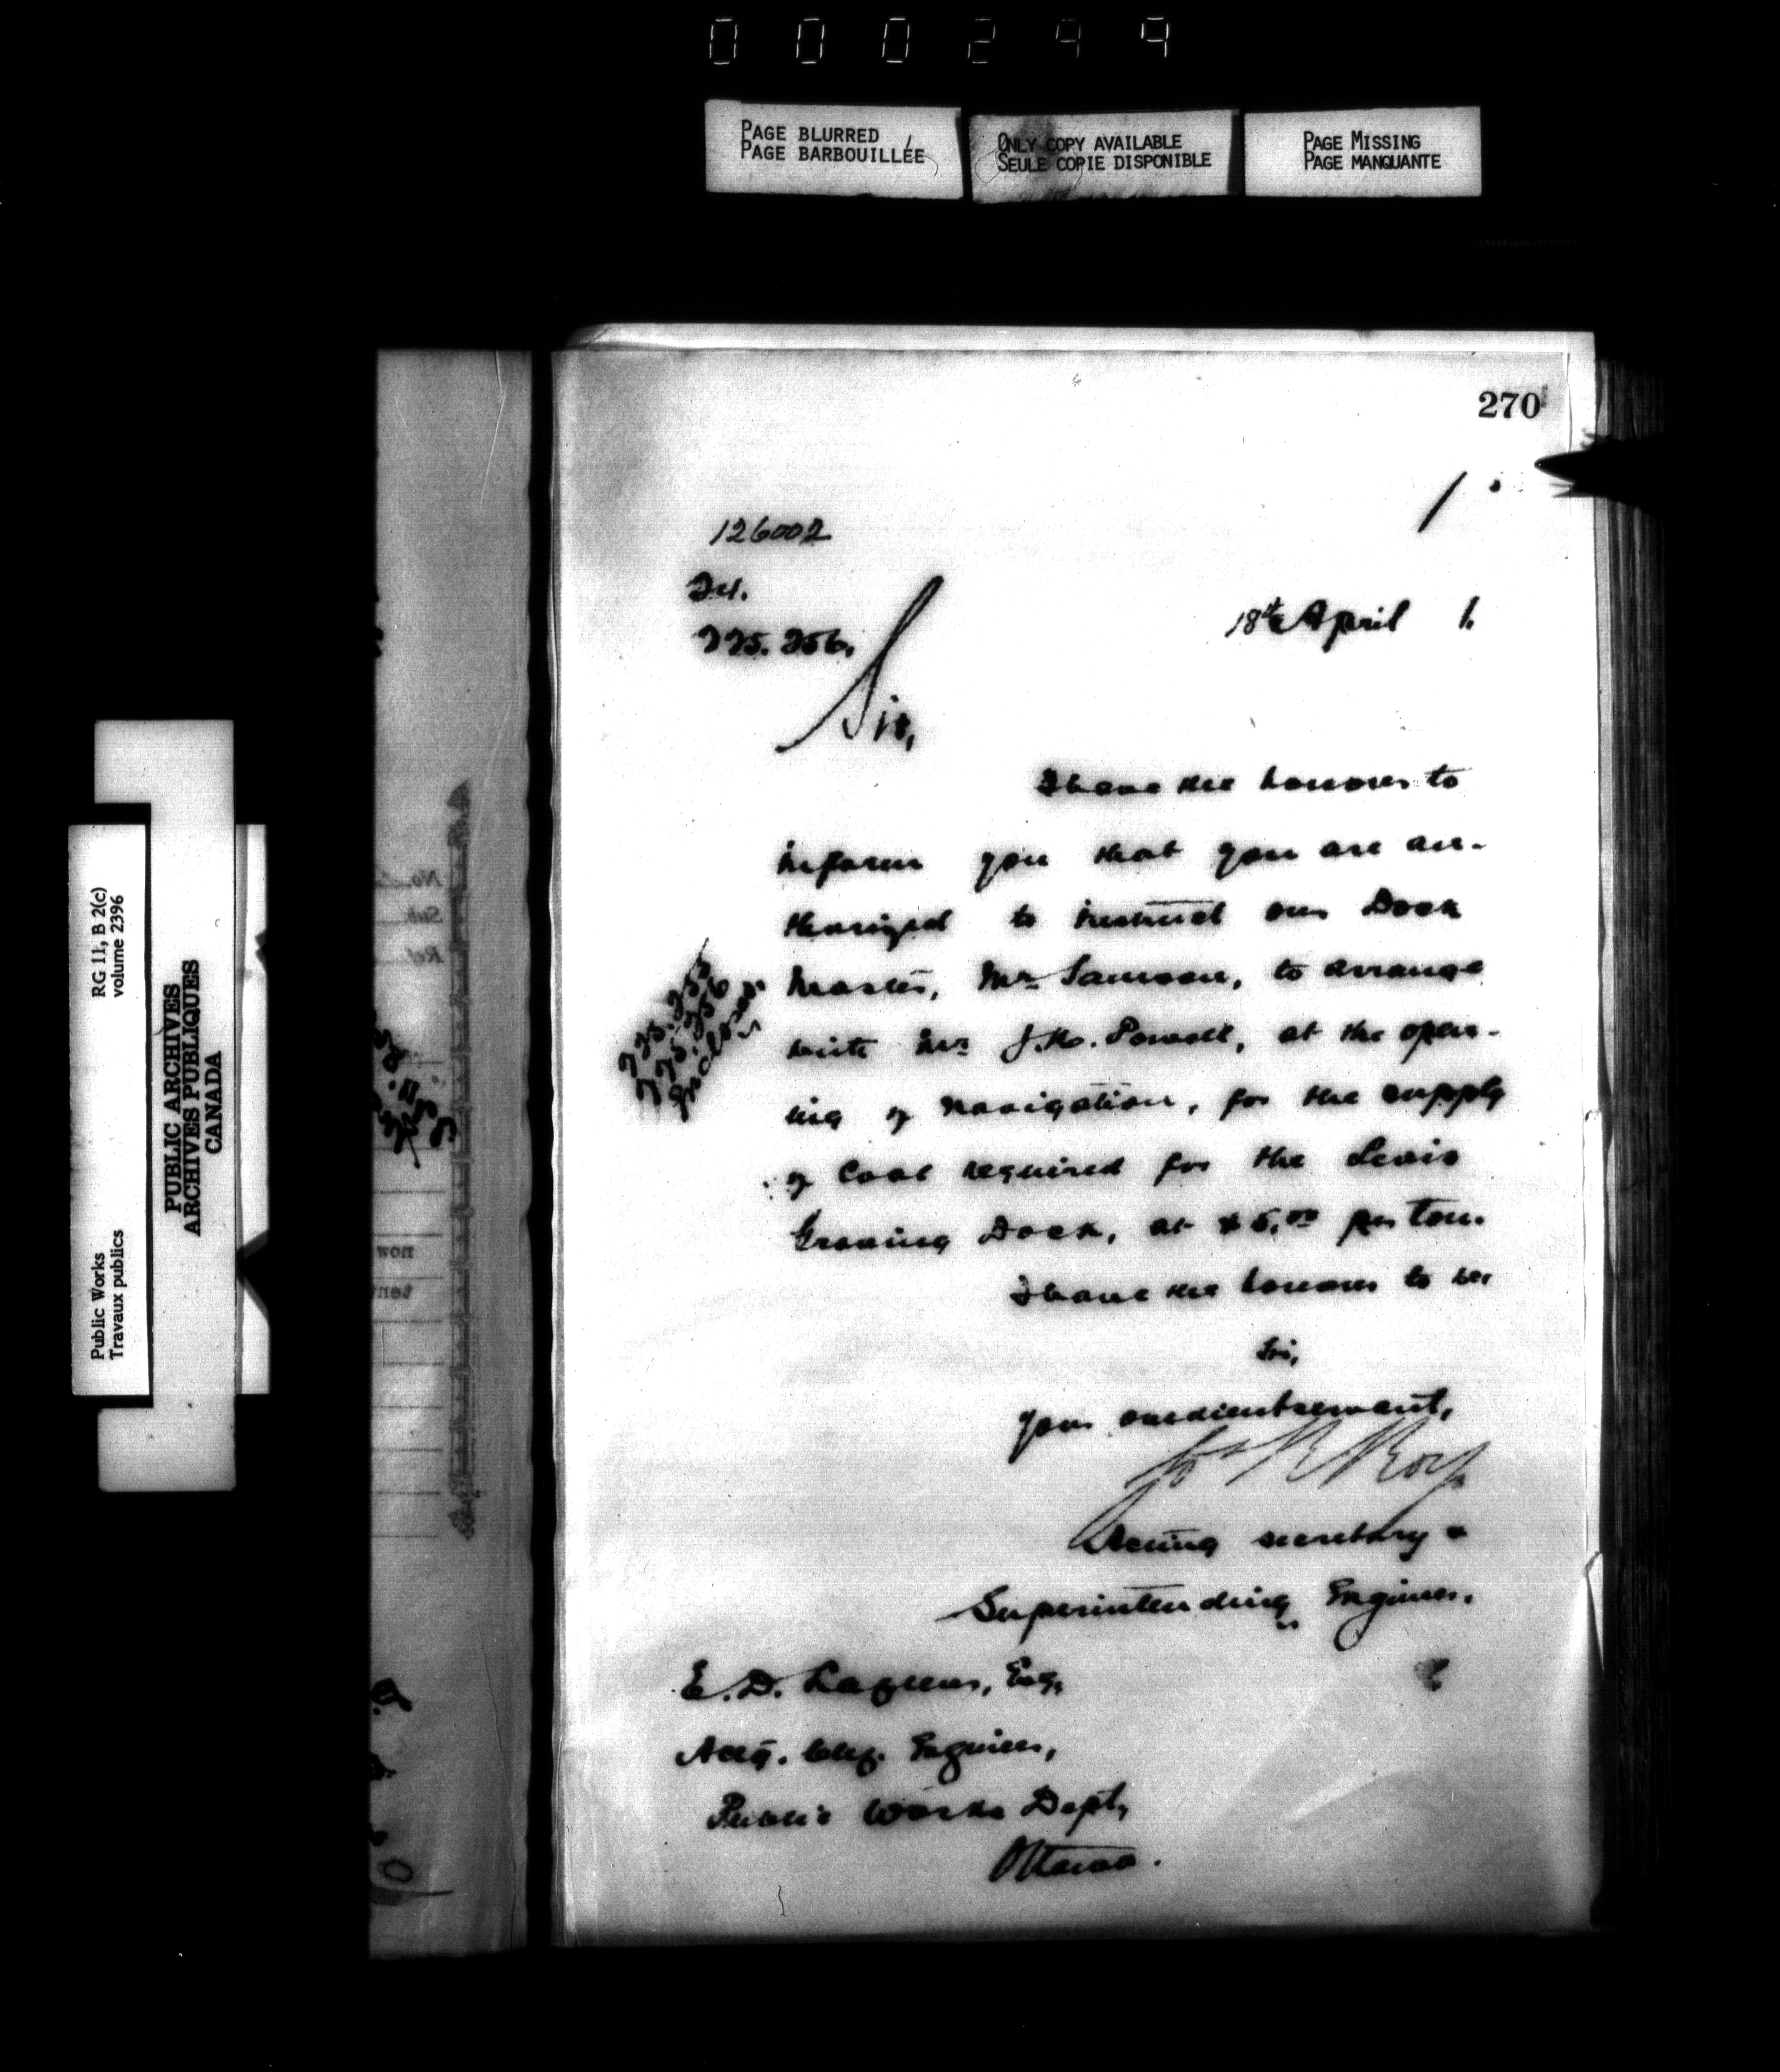 000299
PAGE BLURRED
PAGE BARBOUILLÉE
ONLY COPY AVAILABLE
SEULE COPIE DISPONIBLE
PAGE MISSING
PAGE MANQUANTE
270
1
126002
225.256.
18th April 1.
Sir,
I have the honour to
inform you that you are au-
thorized to instruct our Dock
Master, Mr Samson, to arrange
with Mr Powell, at the open-
ing of navigation, for the supply
of Coal required for the Levis
Graving Dock, at $5.00 per ton.
I have the honour to be,
Sir,
Your obedient servant,
Jos R Roy
Acting secretary &
Superintending Engineer.
E. D. Lafleur, Esq,
Actg. Chf. Engineer,
Public Works Dept,
Ottawa.
225.255
225.256
enclosed.
RG 11, B 2(c)
volume 2396
Public Works
Travaux publics
PUBLIC ARCHIVES
ARCHIVES PUBLIQUES
CANADA